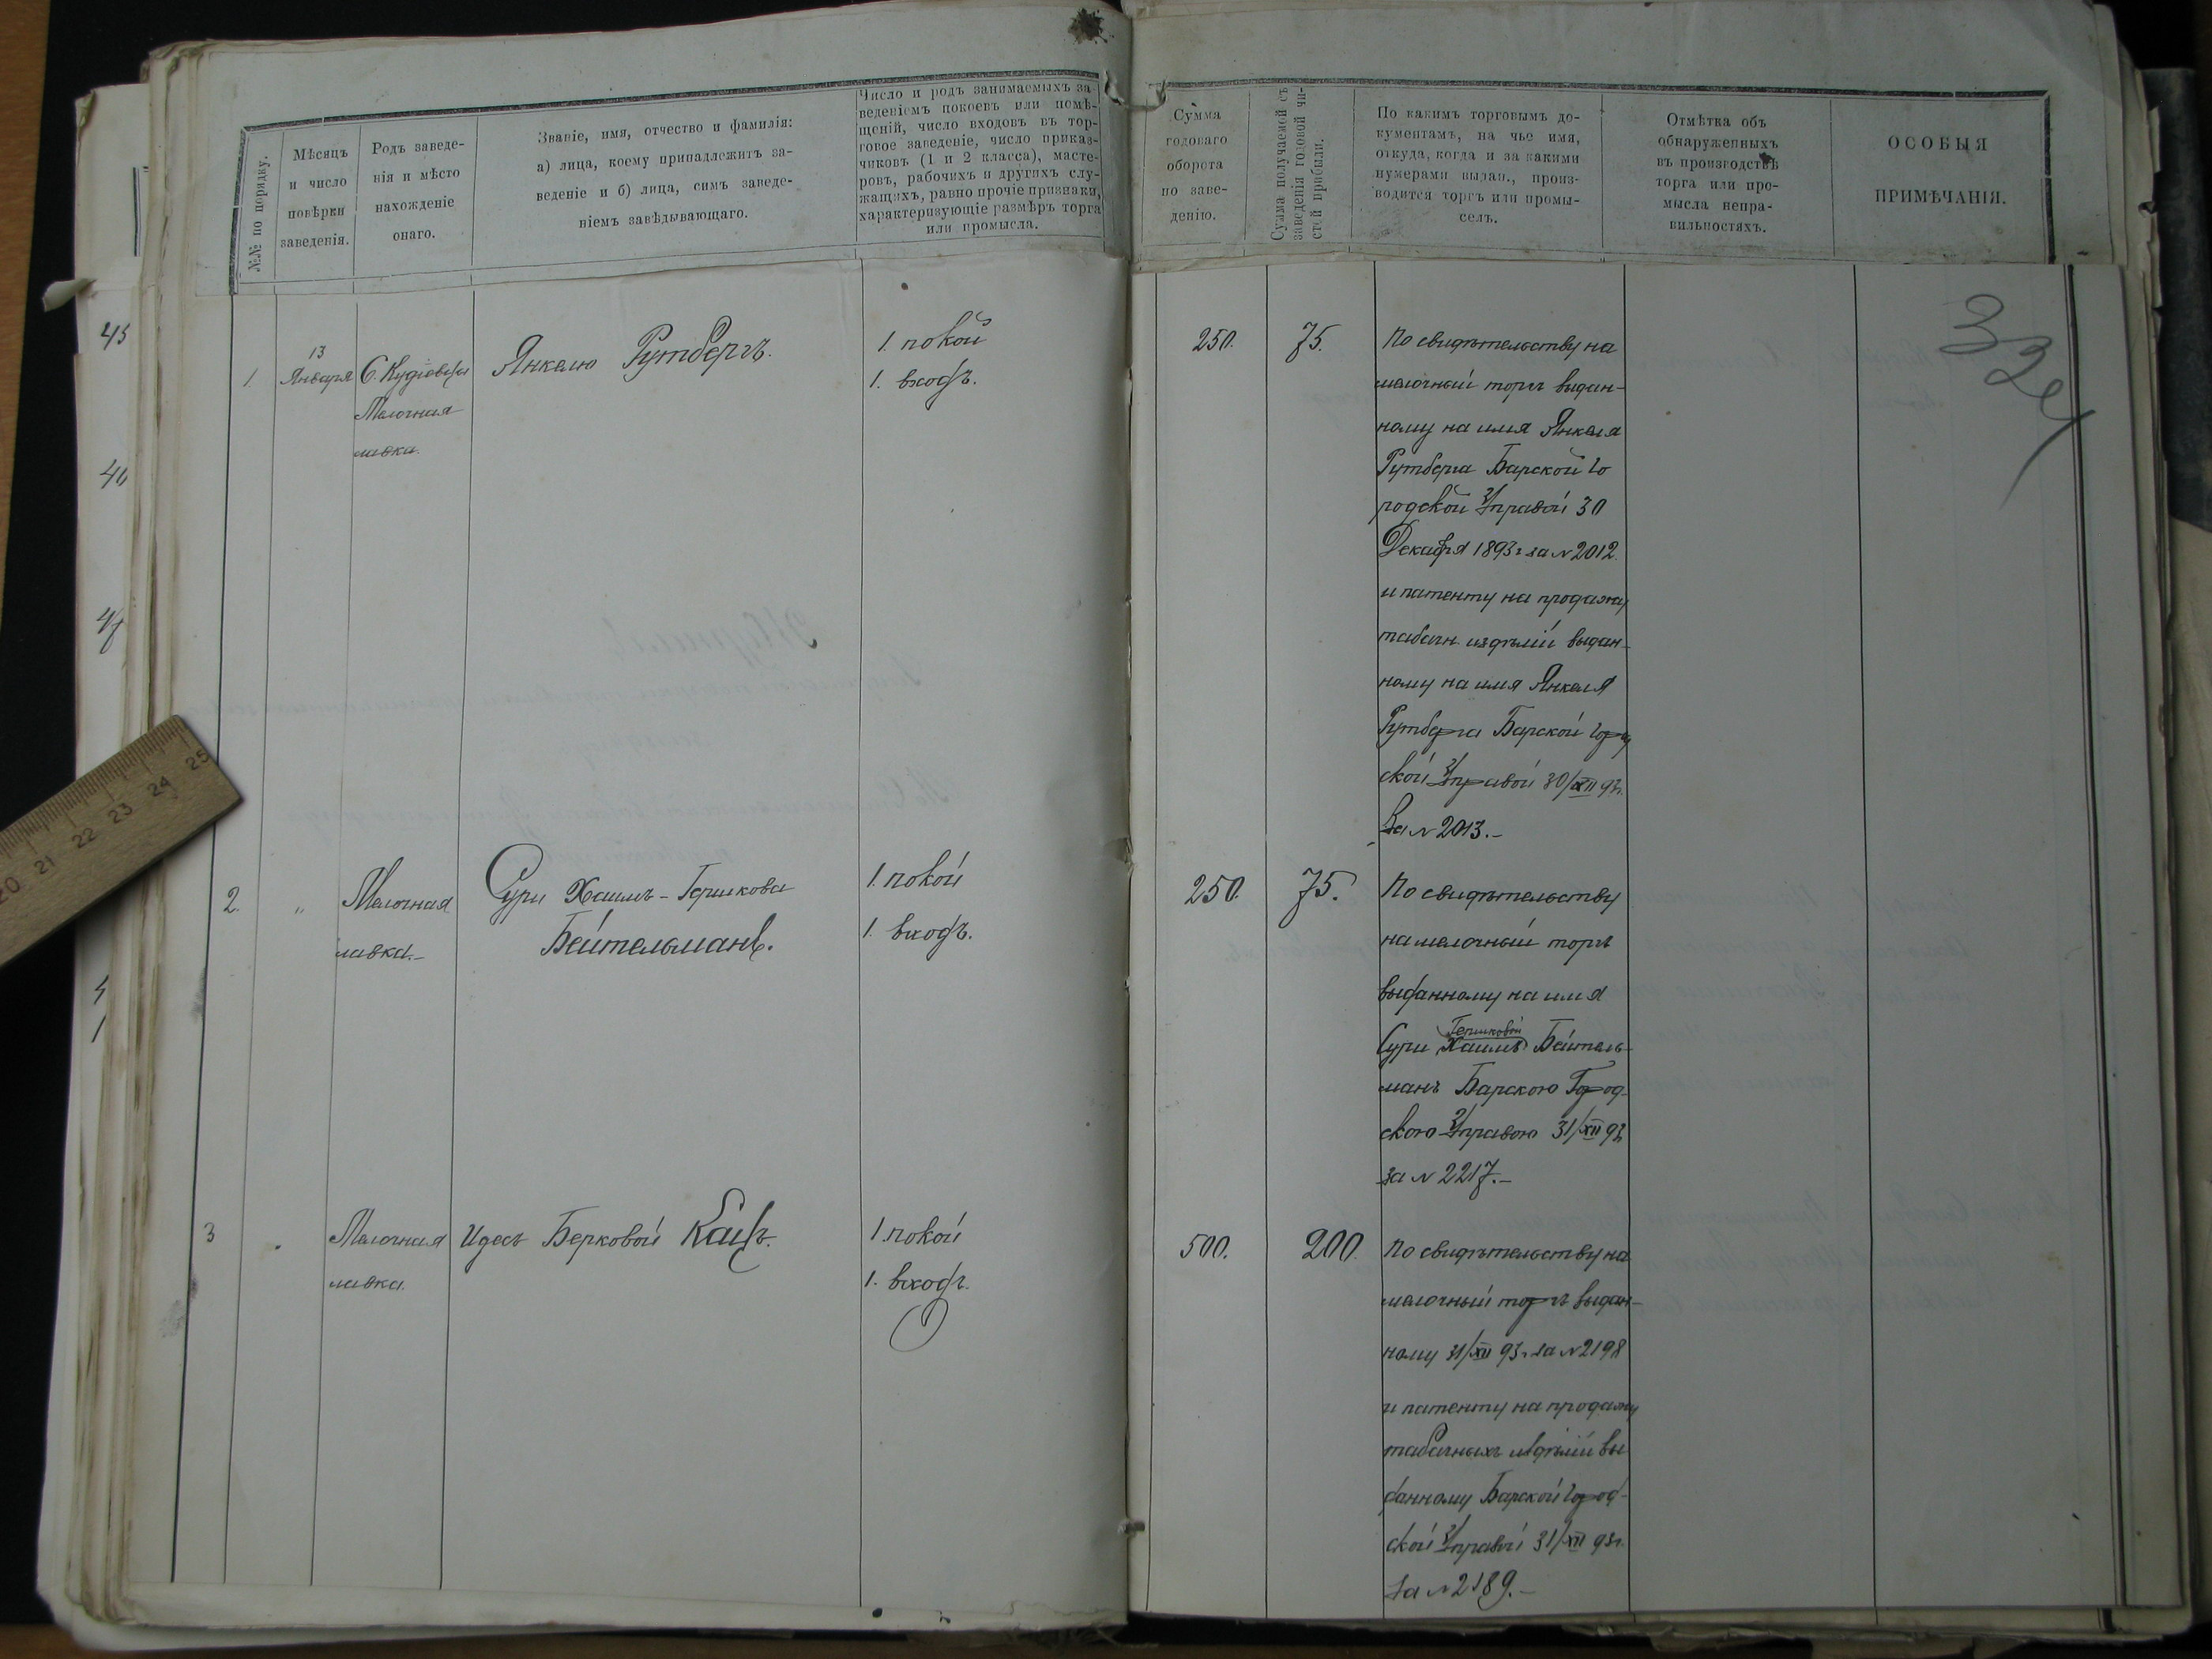 №№ по порядку.
Мѣсяцъ
и число
повѣрки
заведенія.
Родъ заведе-
нія и мѣсто
нахожденіе
онаго.
Званіе, имя, отчество и фамилія:
а) лица, коему принадлежитъ за-
веденіе и б) лица, симъ заведе-
ніемъ завѣдывающаго.
Число и родъ занимаемыхъ за-
веденіемъ покоевъ или помѣ-
щеній, число входовъ въ тор-
говое заведеніе, число приказ-
чиковъ (1 и 2 класса), масте-
ровъ, рабочихъ и другихъ слу-
жащихъ, равно прочіе признаки,
характеризующіе размѣръ торга
или промысла.
Сумма
годоваго
оборота
по заве-
денію.
Сумма получаемой съ
заведенія годовой чи-
стой прибыли.
По какимъ торговымъ до-
кументамъ, на чье имя,
откуда, когда и за какими
нумерами выдан., произ-
водится торгъ или промы-
селъ.
Отмѣтка объ
обнаруженныхъ
въ производствѣ
торга или про-
мысла непра-
вильностяхъ.
ОСОБЫЯ
ПРИМѢЧАНІЯ.
1.
13
Января
Мелочная
лавка.
Янкелю Рутбергъ.
1. покой
1. входъ.
250.
75.
По свидѣтельству на
мелочный торгъ выдан-
ному на имя Янкеля
Рутберга Барской Го
родской Управой 30
Декабря 1893 г за №2012.
и патенту на продажу
табачн. издѣлій выдан-
ному на имя Янкеля
Рутберга Барской Город
ской Управой 30/XII 93г.
За №2013.-
2.
"
Мелочная
лавка.-
Сури Хаимъ-Гершкова
Бейтельманъ.
1. покой
1. входъ.
250.
75.
По свидѣтельству
на мелочный торгъ
выданному на имя
Гершковой
Сури Хаимъ Бейтель-
манъ Барскою Город-
скою Управою 31/XII 93
за №2217.-
3
Мелочная
лавка.
Идесъ Берковой Кацъ.
1 покой
1. входъ.
500.
200.
По свидѣтельству на
мелочный торгъ выдан-
ному 31/XII 93 г за №2198
и патенту на продажу
табачныхъ издѣлій вы
данному Барской Город-
ской Управой 31/XII 93г.
За №2189.-
45
20 21 22 23 24 25